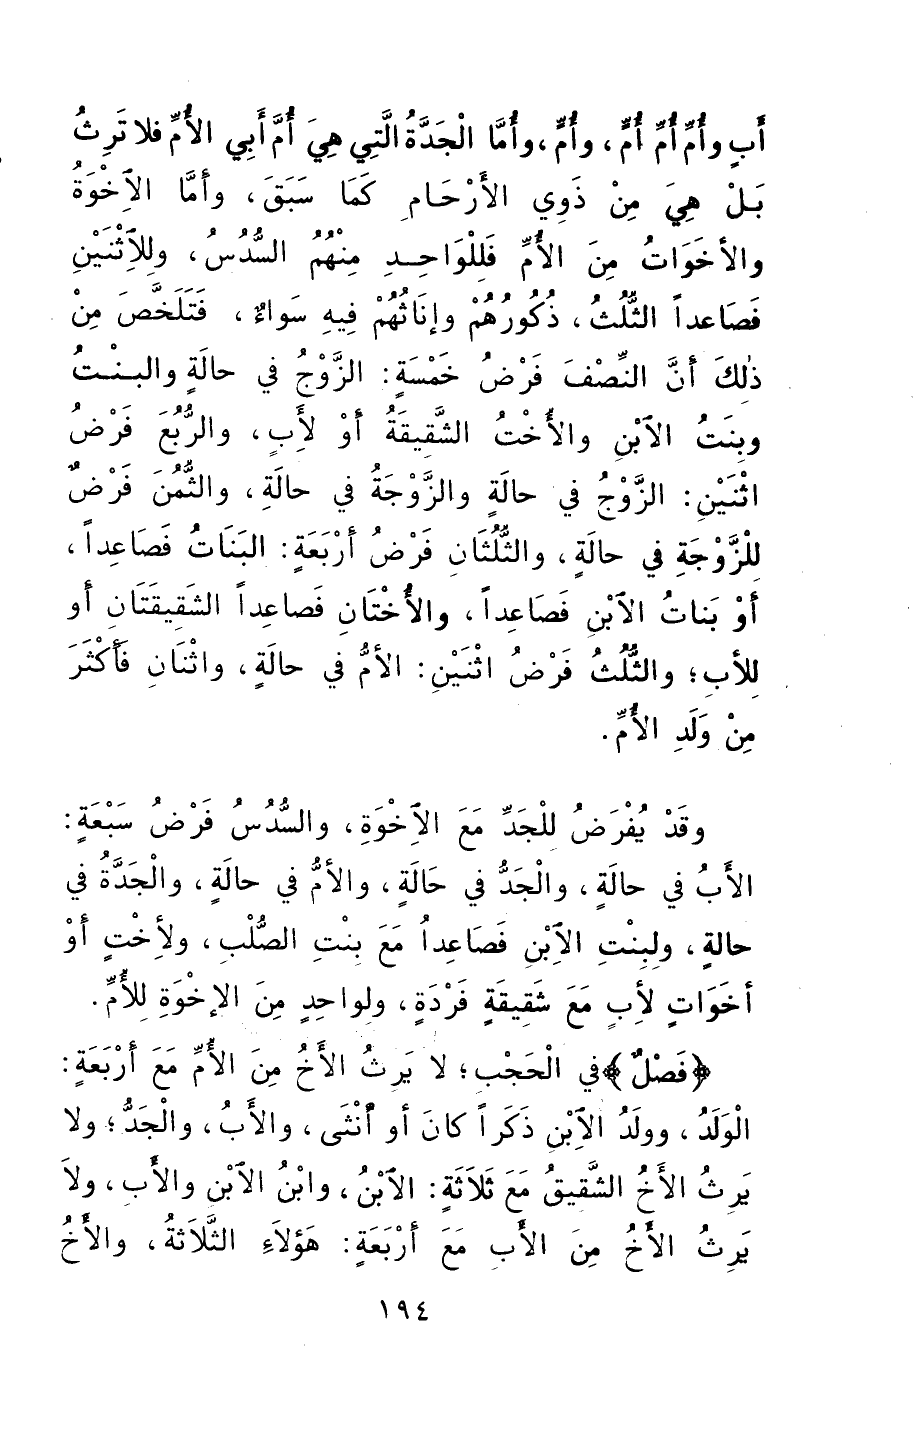 أَبٍ وأُمِّ أُمِّ أُمٍّ، وأُمٍّ، وأُمَّا الْجَدَّةُ الَّتِي هِيَ أُمَّ أَبِي الأُمِّ فلا تَرِثُ
بَلْ هِيَ مِنْ ذَوِي الأَرْحَامِ كَمَا سَبَقَ، وأَمَّا الآِخْوَةُ
والأخَوَاتُ مِنَ الأُمِّ فَلِلْوَاحِدِ مِنْهُم السُّدُسُ، ولِلآِثْنَيْنِ
فَصَاعداً الثُّلُثُ، ذُكُورُهُمْ وإنَاثُهُمْ فِيهِ سَواءٌ، فَتَلَخَّصَ مِنْ
ذٰلِكَ أَنَّ النِّصْفَ فَرْضُ خَمْسَةٍ: الزَّوْجُ في حالَةٍ والبِنْتُ
وبِنَتُ الآبْنِ والأُخْتُ الشَّقِيقَةُ أَوْ لأَبٍ، والرُّبُعَ فَرْضُ
اثْنَيْنِ: الزَّوْجُ في حالَةٍ والزَّوْجَةُ في حالَةِ، والثُّمُنَ فَرْضٌ
لِلْزَّوْجَةِ في حالَةٍ، والثُّلُثَانِ فَرْضُ أَرْبَعَةٍ: البَنَاتُ فَصَاعِداً،
أَوْ بَناتُ الآبْنِ فَصَاعِداً، والأُخْتَانِ فَصاعِداً الشَقِيقَتَانِ أَو
لِلأب؛ والثُّلُثُ فَرْضُ اثْنَيْنِ: الأمُّ في حالَةٍ، واثْنَانِ فَأَكْثَرَ
مِنْ وَلَدِ الأُمِّ.
وقَدْ يُفْرَضُ لِلْجَدِّ مَعَ الآِخْوَةِ، والسُّدُسُ فَرْضُ سَبْعَةٍ:
الأَبُ في حالَةٍ، والْجَدُّ في حَالَةٍ، والأمُّ في حالَةٍ، والْجَدَّةُ في
حالةٍ، ولِبِنْتِ الآِبْنِ فَصَاعِداُ مَعَ بِنْتِ الصُّلْبِ، ولأخْتٍ أَوْ
أخَوَاتٍ لأَبٍ مَعَ شَقِيقَةٍ فَرْدَةٍ، ولواحِدٍ مِنَ الإخْوَةِ لِلأُمِّ.
﴿فَصْلٌ﴾ في الْحَجْبِ؛ لا يَرِثُ الأَخُ مِنَ الأُمِّ مَعَ أَرْبَعَةٍ:
الْوَلَدُ، وولَدُ الآِبْنِ ذَكَراً كانَ أو أُنْثَى، والأَبُ، والْجَدُّ؛ ولا
يَرِثُ الأَخُ الشَّقِيقُ مَعَ ثَلاَثَةٍ: الآبْنُ، وابْنُ الآبْنِ والأَبِ، ولاَ
يَرِثُ الأَخُ مِنَ الأَبِ مَعَ أَرْبَعَةٍ: هَؤلاَءِ الثَّلاَثةُ، والأَخُ
١٩٤